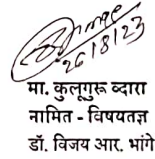 26/8/23
मा. कुलूगुरू व्दारा
नामित - विषयतज्ञ
डॉ. विजय आर. भांगे